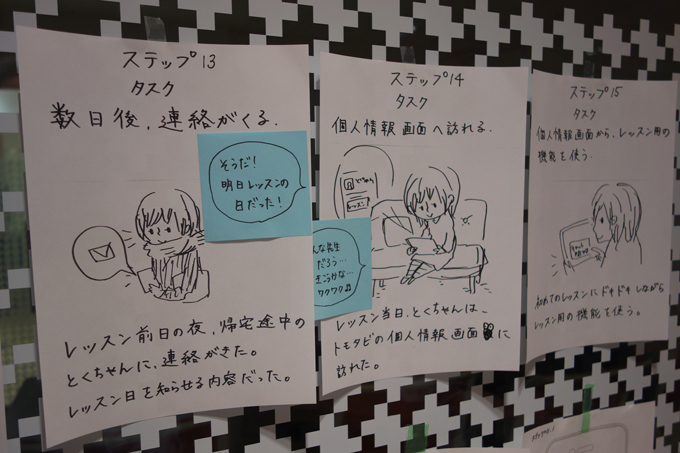 ステップ13
タスク
数日後、連絡がくる.
そうだ!
明日レッスンの
日だった!
レッスン前日の夜、帰宅途中の
とくちゃんに、連絡がきた。
レッスン日を知らせる内容だった。
ステップ14
タスク
個人情報画面へ訪れる.
レッスン
んな先生
だろう…
ワクワク♫
レッスン当日、とくちゃんは、
トモタビの個人情報画面に
訪れた。
ステップ15
タスク
個人情報画面から、レッスン用の
機能を使う.
初めてのレッスンにドキドキしながら
レッスン用の機能を使う。